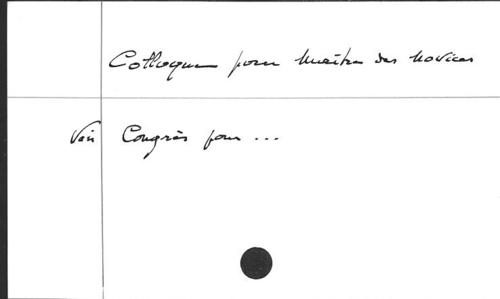 Colloque pour Maitre des Novices
Voir Congrès pour ...